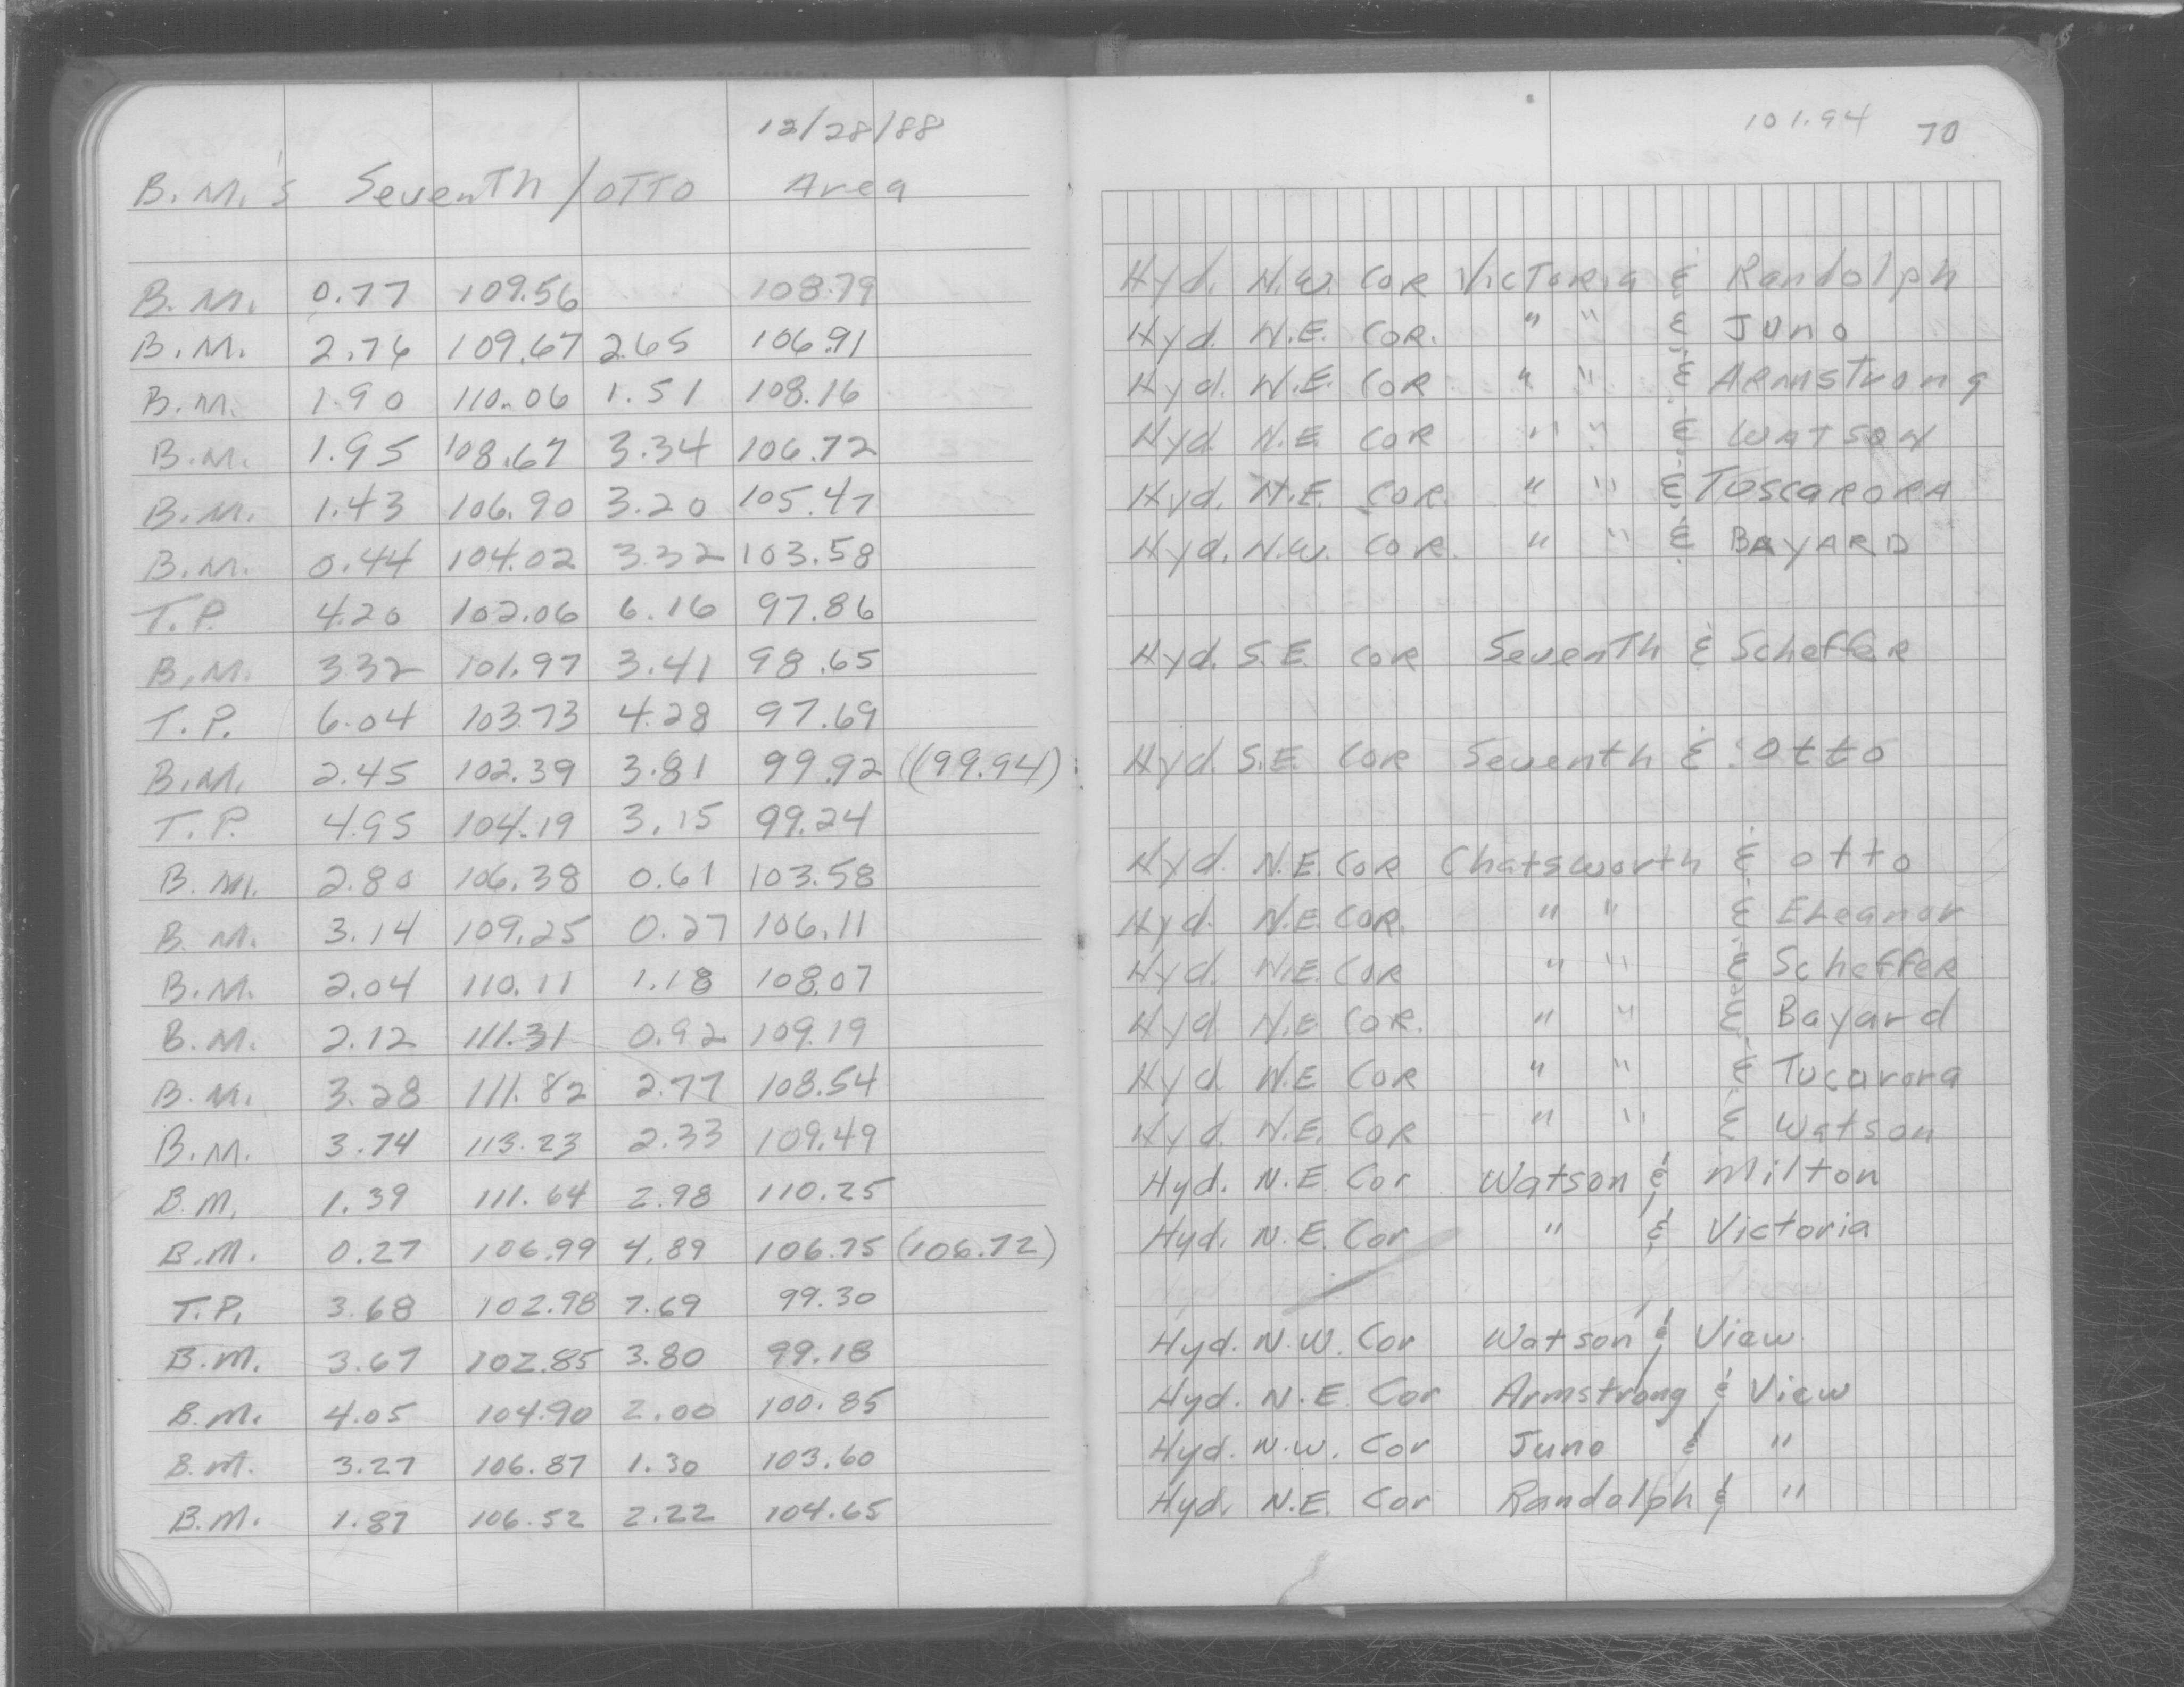 12/28/88
B.M.'s Seventh / Otto Area
B.M. 0.77 109.56 108.79
B.M. 2.76 109.67 2.65 106.91
B.M. 1.90 110.06 1.51 108.16
B.M. 1.95 108.67 3.34 106.72
B.M. 1.43 106.90 3.20 105.47
B.M. 0.44 104.02 3.32 103.58
T.P. 4.20 102.06 6.16 97.86
B.M. 3.32 101.97 3.41 98.65
T.P. 6.04 103.73 4.28 97.69
B.M. 2.45 102.39 3.81 99.92 ((99.94)
T.P. 4.95 104.19 3.15 99.24
B.M. 2.80 106.38 0.61 103.58
B.M. 3.14 109.25 0.27 106.11
B.M. 2.04 110.11 1.18 108.07
B.M. 2.12 111.31 0.92 109.19
B.M. 3.28 111.82 2.77 108.54
B.M. 3.74 113.23 2.33 109.49
B.M. 1.39 111.64 2.98 110.25
B.M. 0.27 106.99 4.89 106.75 (106.72)
T.P. 3.68 102.98 7.69 99.30
B.M. 3.67 102.85 3.80 99.18
B.M. 4.05 104.90 2.00 100.85
B.M. 3.27 106.87 1.30 103.60
B.M. 1.87 106.52 2.22 104.65
101.94 70
Hyd. N.W. Cor Victoria & Randolph
Hyd. N.E. Cor. " " & Juno
Hyd. N.E. Cor " " & Armstrong
Hyd. N.E. Cor " " & Watson
Hyd. N.E. Cor. " " & Tuscarora
Hyd. N.W. Cor. " " & Bayard
Hyd. S.E. Cor Seventh & Scheffer
Hyd. S.E. Cor Seventh & Otto
Hyd. N.E. Cor Chatsworth & Otto
Hyd. N.E. Cor. " " & Eleanor
Hyd. N.E. Cor " " & Scheffer
Hyd N.E. Cor. " " & Bayard
Hyd N.E. Cor " " & Tucarora
Hyd. N.E. Cor " " & Watson
Hyd. N.E. Cor Watson & Milton
Hyd. N.E. Cor " & Victoria
Hyd. N.W. Cor Watson & View
Hyd. N.E. Cor Armstrong & View
Hyd. N.W. Cor Juno & "
Hyd. N.E. Cor Randolph & "